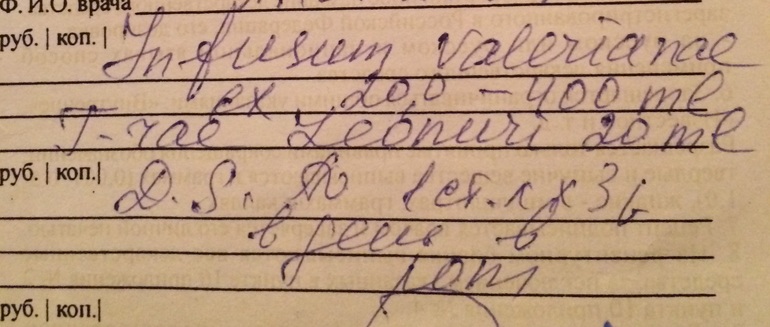 Ф. И.О. врача
руб. | коп. | Infusum Valerianae
ex 20,0 – 400 ml
T-rae Leonuri 20 ml
руб. | коп. | D. S. По 1 ст л х 3
в день в
рот
руб. | коп. |